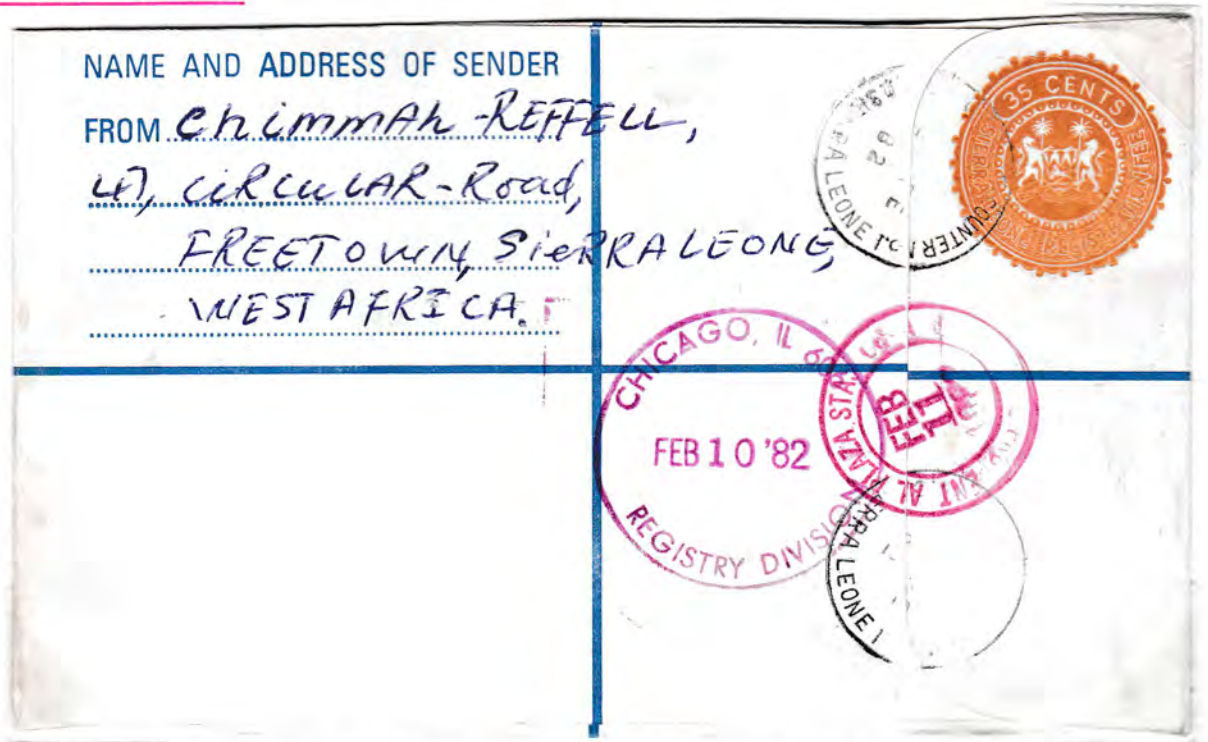 NAME AND ADDRESS OF SENDER
FROM Chimmah-REFFELL,
47, CiRCuLAR-Road,
FREETOWN, SieRRALEONE,
WEST AFRICA.
35 CENTS
SIERRA LEONE
COUNTER
RA LEONE
82
CHICAGO, IL 60
FEB 10 '82
REGISTRY DIVISION
PLAZA STA
FEB
11
ERRA LEONE